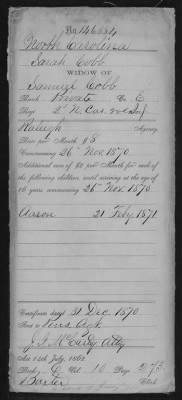 No. 146,554
North Carolina
Sarah Cobb
WIDOW OF
Samuel Cobb
Rank Private Co. E
Regt 2" N. Car. vols Inf
Raleigh Agency
Rate per Month $8
Commencing 26" Nov. 1870
Additional sum of $2 per Month for each of
the following children, until arriving at the age of
16 years, commencing 26" Nov 1870.
Aaron 21 July 1871
Certificate dated 31 Dec 1870
Pens. Agt.
J. J. McCarty Atty
Act 14th July, 1862.
Book G Vol. 10 Page 275
Clerk